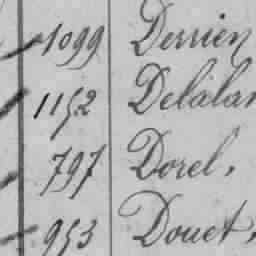 1099 Derrien
1152 Délalan
797 Dorel,
953 Douet,